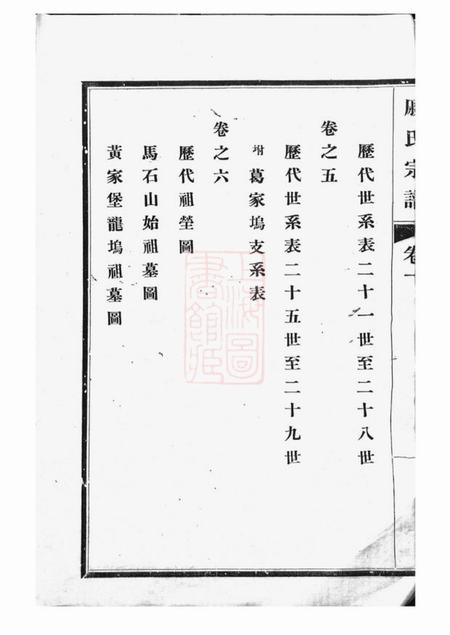 氏宗譜
卷
歷代世系表二十一世至二十八世
卷之五
歷代世系表二十五世至二十九世
坿葛家塢支系表
卷之六
歷代祖塋圖
馬石山始祖墓圖
黃家堡龍塢祖墓圖
上海圖書館藏